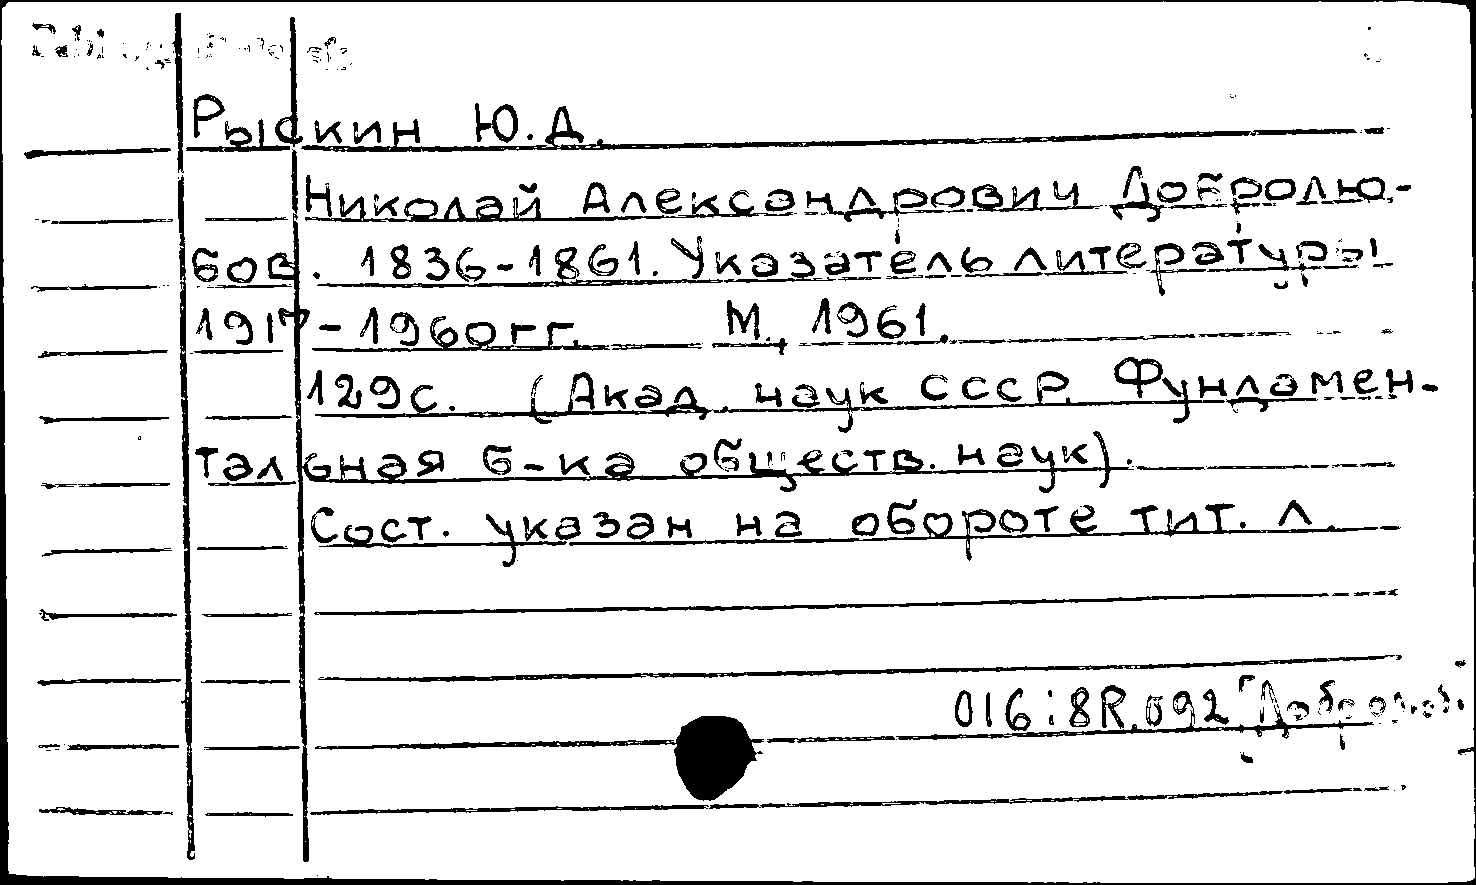 Рыскин Ю.Д.
Николай Александрович Добролю-
бов. 1836-1861. Указатель литературы
1917-1960гг. М., 1961.
129с. (Акад. наук СССР. Фундамен-
тальная б-ка обществ. наук).
Сост. указан на обороте тит. л.
016:8R.092